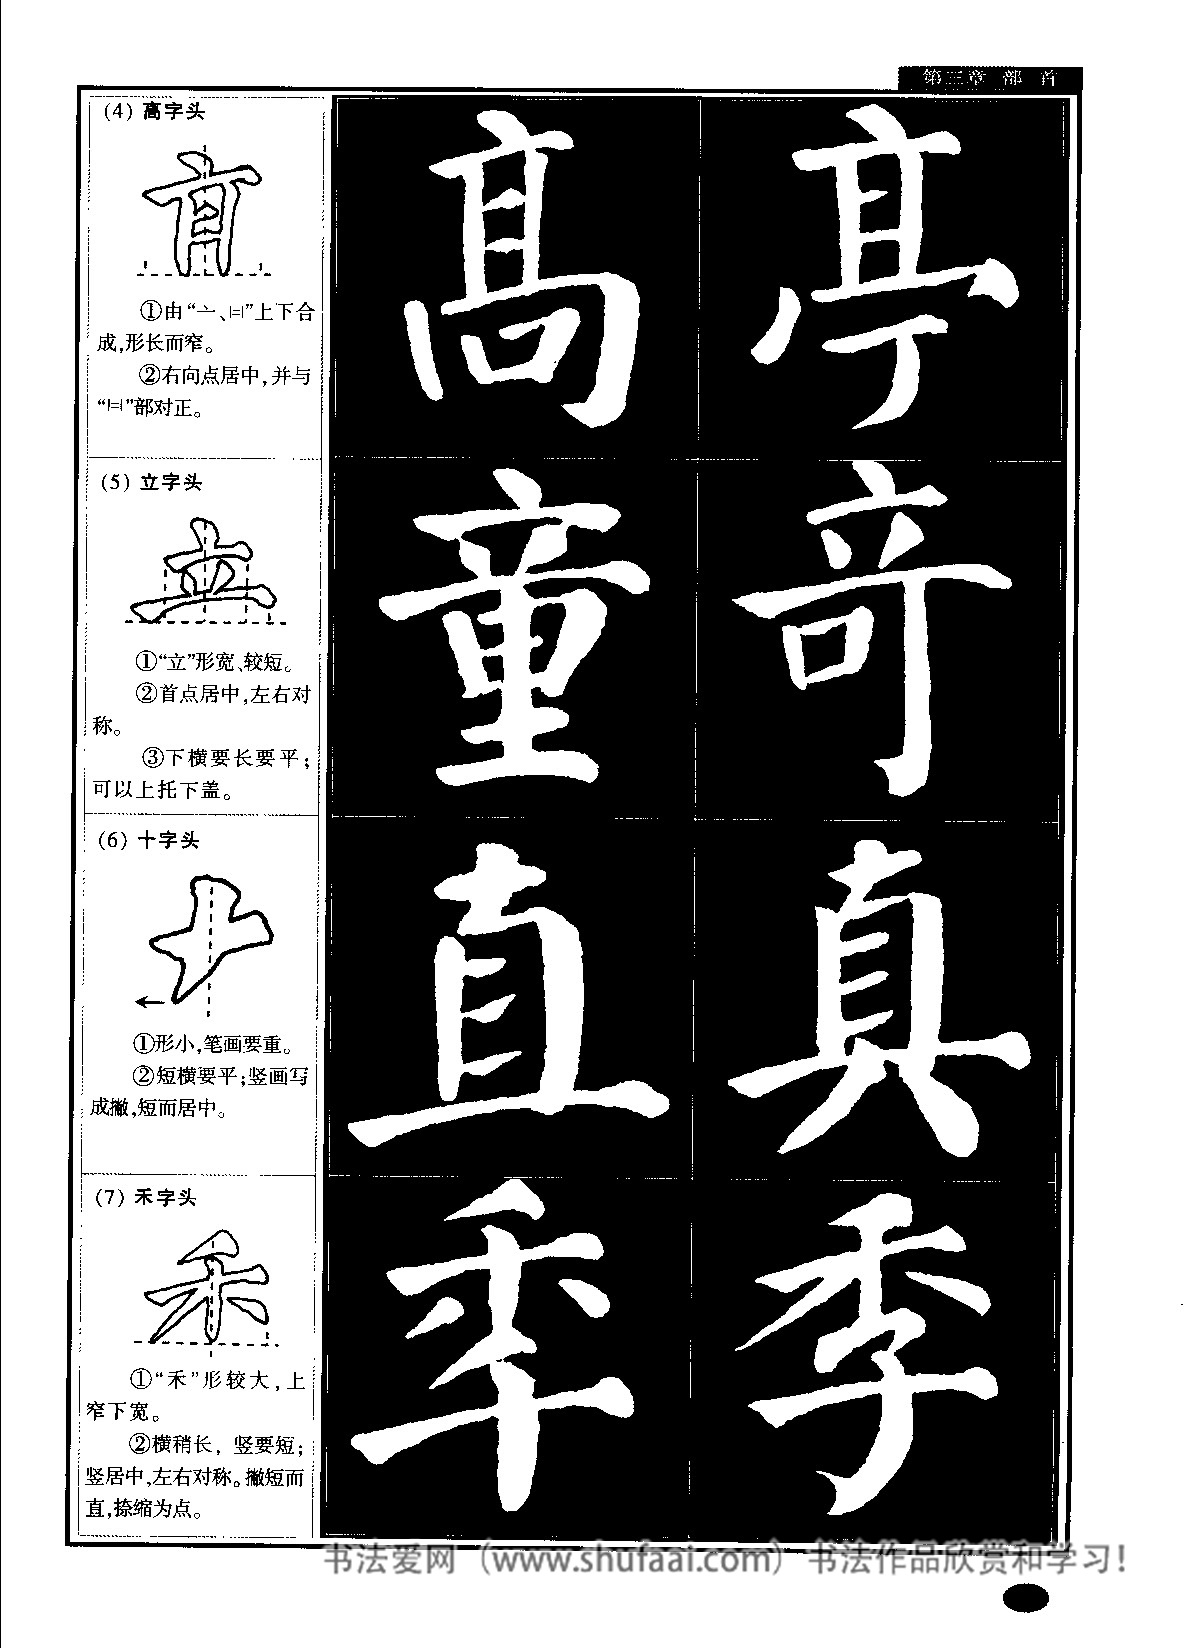 第三章 部 首
(4) 高字头
①由“亠、”上下合
成,形长而窄。
②右向点居中,并与
“”部对正。
高 亭
(5) 立字头
①“立”形宽、较短。
②首点居中,左右对
称。
③下横要长要平;
可以上托下盖。
童 竒
(6) 十字头
①形小,笔画要重。
②短横要平;竖画写
成撇,短而居中。
直 真
(7) 禾字头
①“禾”形较大,上
窄下宽。
②横稍长,竖要短;
竖居中,左右对称。撇短而
直,捺缩为点。
季
书法爱网（www.shufaai.com）书法作品欣赏和学习！